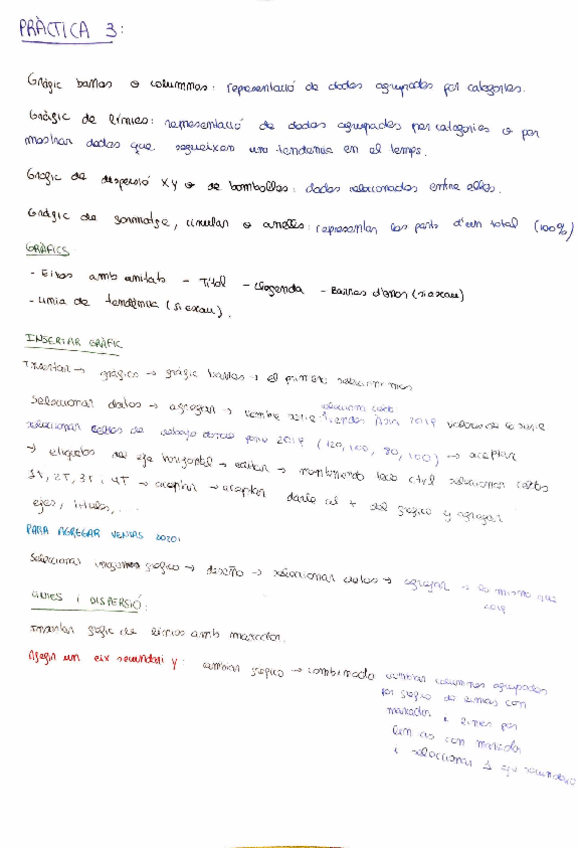 PRÀCTICA 3:
Gràfic barres o columnes: representació de dades agrupades per categories.
Gràfic de línies: representació de dades agrupades per categories o per
mostrar dades que segueixen una tendencia en el temps.
Gràfic de dispersió XY o de bombolles: dades relacionades entre elles.
Gràfic de formatge, circular o anelles: representen les parts d'un total (100%)
GRÀFICS
- Eixos amb unitats - Títol - Llegenda - Barres d'error (si escau)
- Línia de tendència (si escau).
INSERTAR GRÀFIC
Insertar → gráfico → gràfic barres → el primero seleccionamos
selecciono celda
Seleccionar datos → agregar → nombre serie: Ventas Año 2019 valores de la serie
seleccionar celdas de trabajo donde pone 2019 (120, 100, 80, 100) → aceptar
→ etiquetas del eje horizontal → editar → manteniendo tecla ctrl seleccionar celdas
1T, 2T, 3T, 4T → aceptar → aceptar darle al + del gráfico y agregar
ejes, títulos, ...
PARA AGREGAR VENTAS 2020:
Seleccionar gráfico → diseño → seleccionar datos → agregar → lo mismo que
2019
LINIES I DISPERSIÓ:
Insertar gràfic de línies amb marcador.
Afegir un eix secundari y: cambiar gráfico → combinado cambiar columnas agrupadas
por gráfico de lineas con
marcador y lines por
lineas con marcador
i seleccionar 1 eje secundario